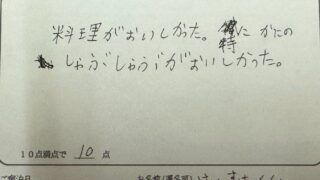 料理がおいしかった。特に かにの
しゃぶしゃぶがおいしかった。
10点満点で 10 点